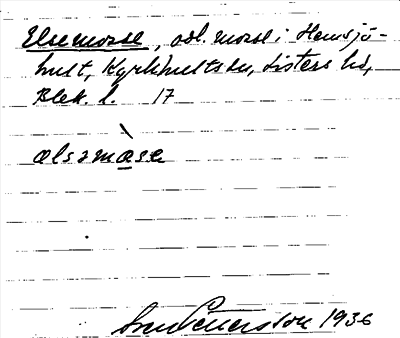 Elsemosse, odl. mosse i Hemsjö-
hult, Kyrkhults sn, Listers hd,
Blek. l. 17
ælsəmåse
Sven Pettersson 1936